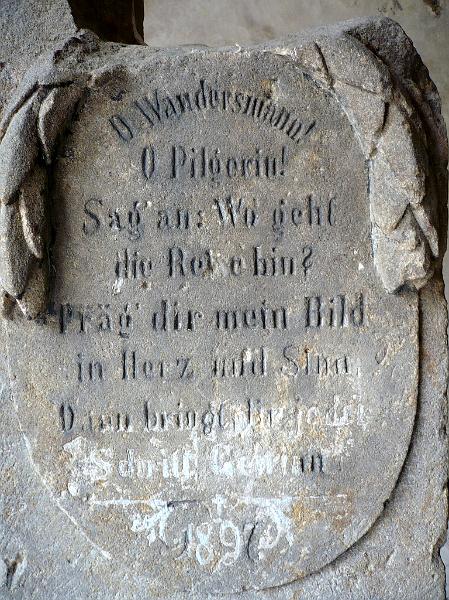 O Wandersmann!
O Pilgerin!
Sag' an: Wo geht
die Reise hin?
Präg' dir mein Bild
in Herz und Sinn,
Dann bringt dir jeder
Schritt Gewinn
1897